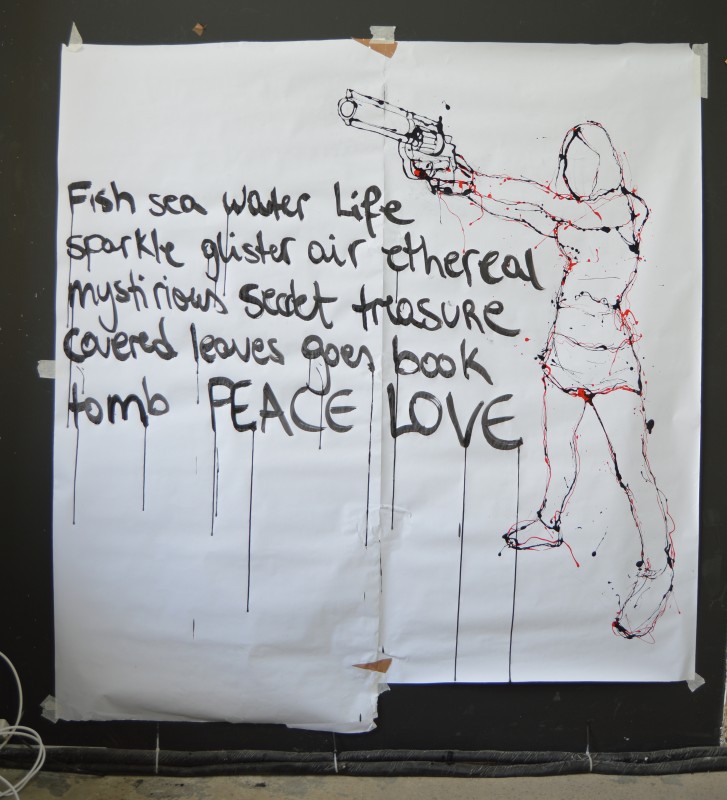 Fish sea water Life
sparkle glister air ethereal
mystirious secret treasure
covered leaves goes book
tomb PEACE LOVE